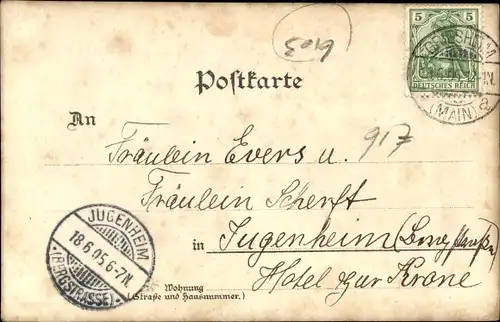 5019
5
DEUTSCHES REICH
Postkarte
(MAIN)
a
An
917
Fräulein Evers u.
Fräulein Scherft
in Jugenheim (Bergstraße)
Hotel zur Krone
JUGENHEIM
18.6.05.6-7N.
(BERGSTRASSE)
Wohnung
(Straße und Hausnummer.)